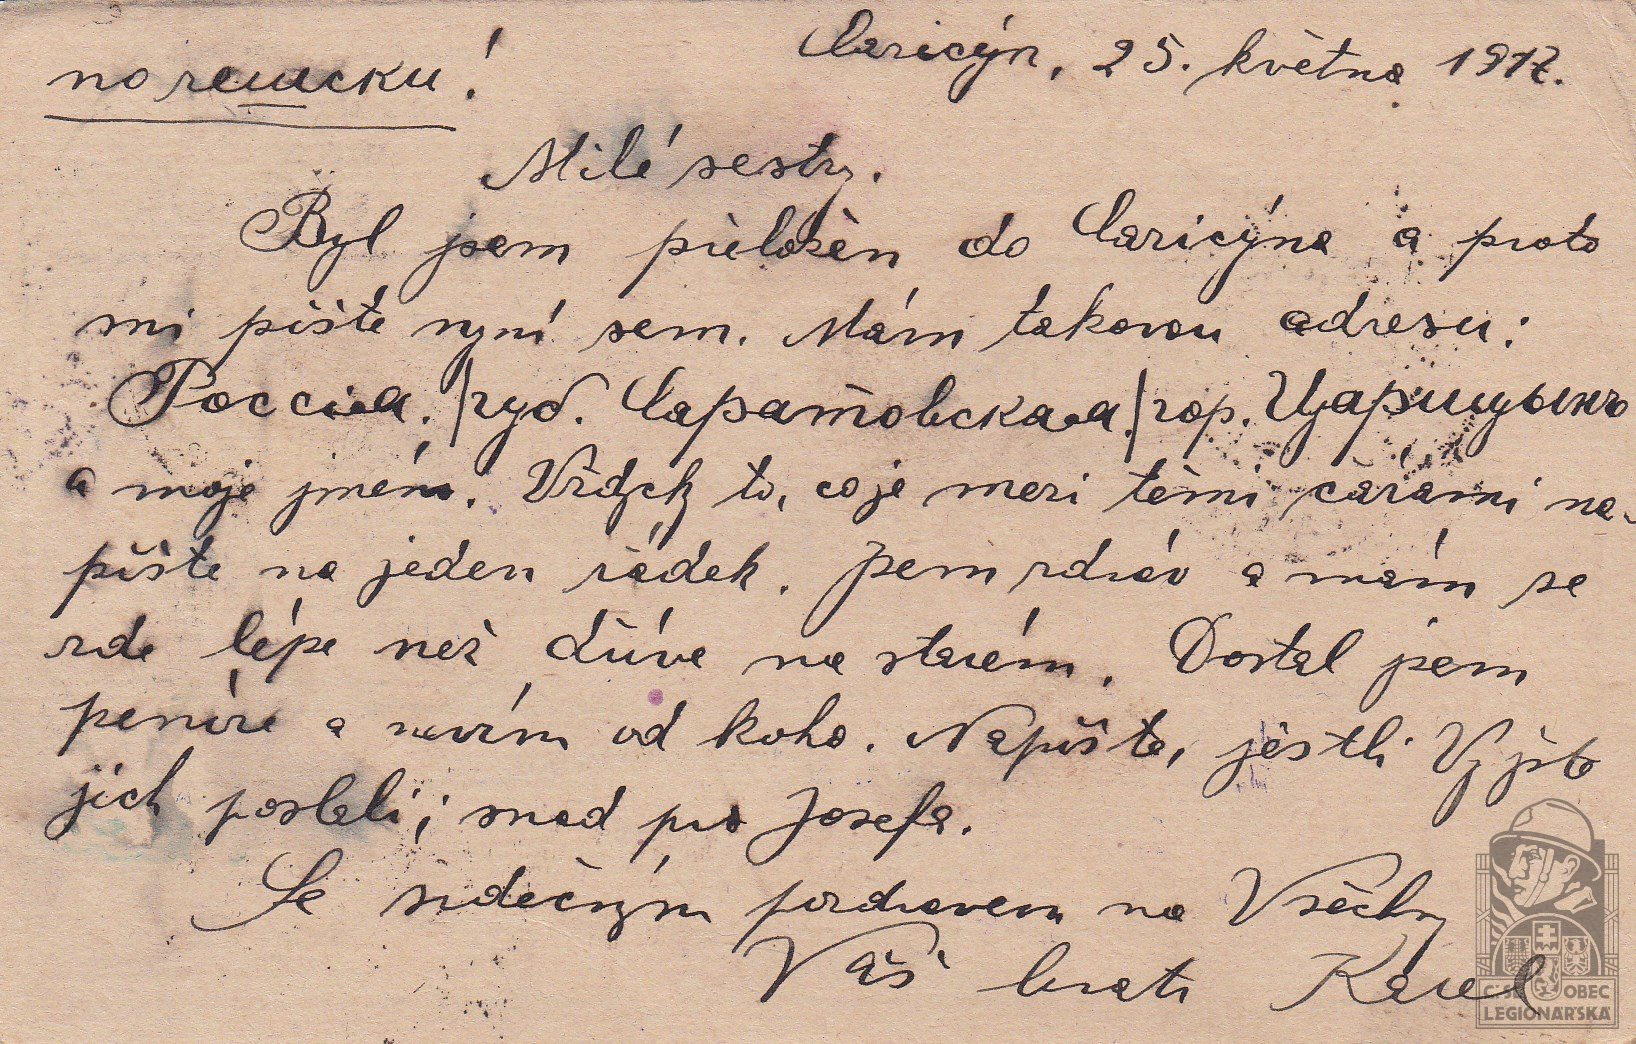 по чешски!
Caricýn, 25. května 1917.
Milé sestry.
Byl jsem přeložen do Caricýna a proto
mi pište nyní sem. Mám takovou adresu:
Россия. / губ. Саратовская. / гор. Царицынъ
a moje jméno. Vždyck to, co je mezi těmi čárami na-
pište na jeden řádek. Jsem zdráv a mám se
zde lépe než dříve na starém. Dostal jsem
peníze a nevím od koho. Napište, jestli Vy jste
jich poslali; snad pro Josefa.
Se srdečným pozdravem na Všechny
Váš bratr Karel
ČS. OBEC
LEGIONÁŘSKÁ